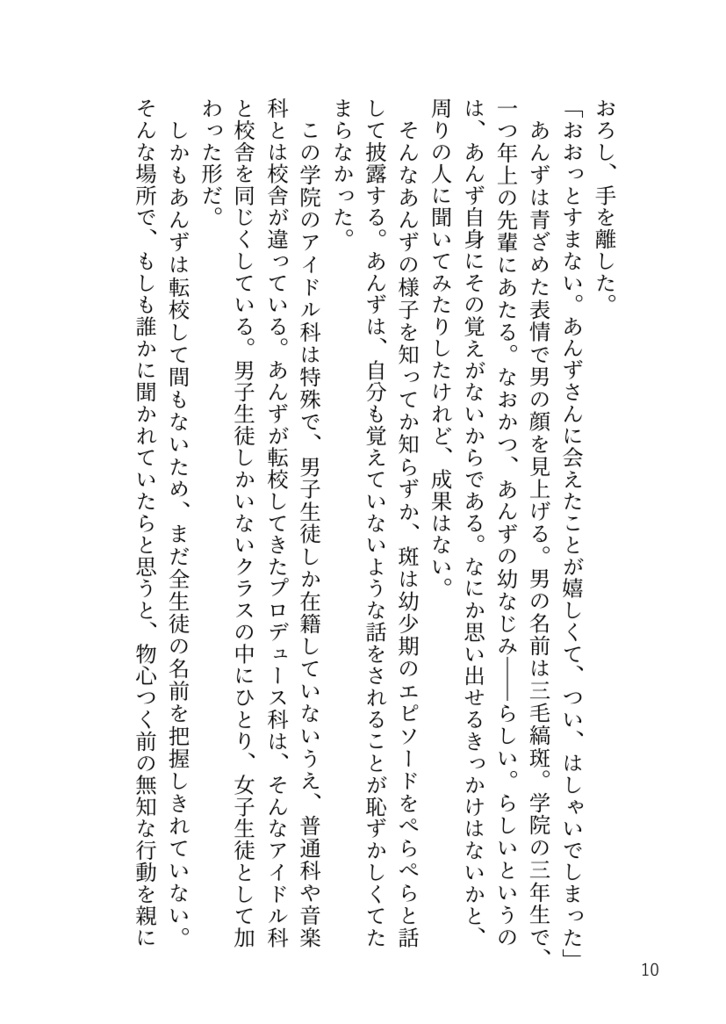 おろし、手を離した。
「おおっとすまない。あんずさんに会えたことが嬉しくて、つい、はしゃいでしまった」
　あんずは青ざめた表情で男の顔を見上げる。男の名前は三毛縞斑。学院の三年生で、
一つ年上の先輩にあたる。なおかつ、あんずの幼なじみ――らしい。らしいというの
は、あんず自身にその覚えがないからである。なにか思い出せるきっかけはないかと、
周りの人に聞いてみたりしたけれど、成果はない。
　そんなあんずの様子を知ってか知らずか、斑は幼少期のエピソードをぺらぺらと話
して披露する。あんずは、自分も覚えていないような話をされることが恥ずかしくてた
まらなかった。
　この学院のアイドル科は特殊で、男子生徒しか在籍していないうえ、普通科や音楽
科とは校舎が違っている。あんずが転校してきたプロデュース科は、そんなアイドル科
と校舎を同じくしている。男子生徒しかいないクラスの中にひとり、女子生徒として加
わった形だ。
　しかもあんずは転校して間もないため、まだ全生徒の名前を把握しきれていない。
そんな場所で、もしも誰かに聞かれていたらと思うと、物心つく前の無知な行動を親に
10